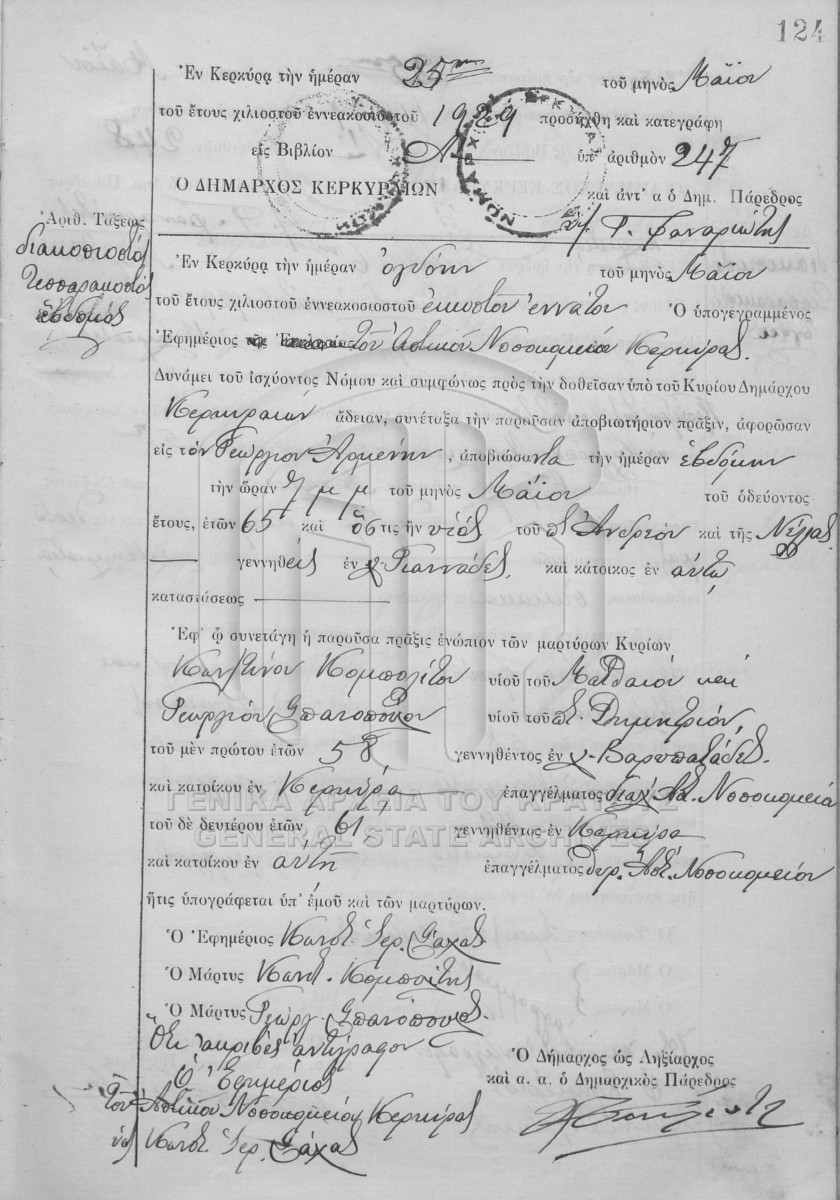 124
Ἐν Κερκύρᾳ τὴν ἡμέραν 25ην τοῦ μηνὸς Μαΐου
τοῦ ἔτους χιλιοστοῦ ἐννεακοσιοστοῦ 1929 προσήχθη καὶ κατεγράφη
εἰς Βιβλίον Α ὑπ' ἀριθμὸν 247
Ο ΔΗΜΑΡΧΟΣ ΚΕΡΚΥΡΑΙΩΝ
καὶ ἀντ' α ὁ Δημ. Πάρεδρος
Γ. Φαναριώτης
Ἀριθ. Τάξεως
διακοσιοστὸς
τεσσαρακοστὸς
ἕβδομος
Ἐν Κερκύρᾳ τὴν ἡμέραν ὀγδόην τοῦ μηνὸς Μαΐου
τοῦ ἔτους χιλιοστοῦ ἐννεακοσιοστοῦ εἰκοστοῦ ἐννάτου Ὁ ὑπογεγραμμένος
Ἐφημέριος τοῦ Ἀστικοῦ Νοσοκομείου Κερκύρας
Δυνάμει τοῦ ἰσχύοντος Νόμου καὶ συμφώνως πρὸς τὴν δοθεῖσαν ὑπὸ τοῦ Κυρίου Δημάρχου
Κερκυραίων ἄδειαν, συνέταξα τὴν παροῦσαν ἀποβιωτήριον πρᾶξιν, ἀφορῶσαν
εἰς τὸν Γεώργιον Ἀρμένην, ἀποβιώσαντα τὴν ἡμέραν ἑβδόμην
τὴν ὥραν 7 μ μ τοῦ μηνὸς Μαΐου τοῦ ὁδεύοντος
ἔτους, ἐτῶν 65 καὶ ὅστις ἦν υἱὸς τοῦ π Ἀνδρέου καὶ τῆς
γεννηθεὶς ἐν χ Γιαννάδες, καὶ κάτοικος ἐν αὐτῷ
καταστάσεως
Ἐφ' ᾧ συνετάγη ἡ παροῦσα πρᾶξις ἐνώπιον τῶν μαρτύρων Κυρίων
Κωνστίνου Κομπολίτου υἱοῦ τοῦ Ματθαίου καὶ
Γεωργίου Σπανοπούλου υἱοῦ τοῦ π. Δημητρίου,
τοῦ μὲν πρώτου ἐτῶν 58, γεννηθέντος ἐν χ. Βαρυπατάδες.
καὶ κατοίκου ἐν Κερκύρᾳ ἐπαγγέλματος διαχ. Ἀστ. Νοσοκομείου
τοῦ δὲ δευτέρου ἐτῶν 61, γεννηθέντος ἐν Κερκύρᾳ
καὶ κατοίκου ἐν αὐτῇ ἐπαγγέλματος Ἀστ. Νοσοκομείου
ἥτις ὑπογράφεται ὑπ' ἐμοῦ καὶ τῶν μαρτύρων.
Ὁ Ἐφημέριος Κωνστ. Ἱερ. Σάχας
Ὁ Μάρτυς Κωνστ. Κομπολίτης
Ὁ Μάρτυς Γεώργ. Σπανόπουλος
Ὅτι ἀκριβὲς ἀντίγραφον
Ὁ Ἐφημέριος
τοῦ Ἀστικοῦ Νοσοκομείου Κερκύρας
Κωνστ. Ἱερ. Σάχας
Ὁ Δήμαρχος ὡς Ληξίαρχος
καὶ α. α. ὁ Δημαρχικὸς Πάρεδρος
ΓΕΝΙΚΑ ΑΡΧΕΙΑ ΤΟΥ ΚΡΑΤΟΥΣ
GENERAL STATE ARCHIVES